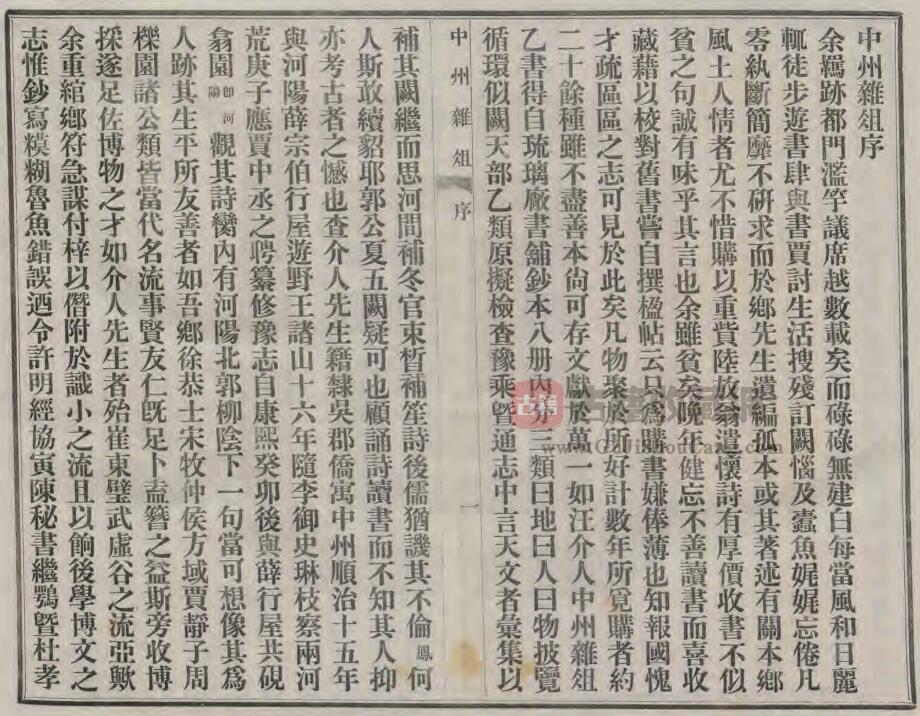 中州雜俎序
余羈跡都門濫竽議席越數載矣而碌碌無建白每當風和日麗
輒徒步遊書肆與書賈討生活搜殘訂闕惱及蠹魚娓娓忘倦凡
零紈斷簡靡不研求而於鄉先生遺編孤本或其著述有關本鄉
風土人情者尤不惜購以重貲陸放翁遣懷詩有厚價收書不似
貧之句誠有味乎其言也余雖貧矣晚年健忘不善讀書而喜收
藏藉以校對舊書嘗自撰楹帖云只為購書嫌俸薄也知報國愧
才疏區區之志可見於此矣凡物聚於所好計數年所覓購者約
二十餘種雖不盡善本尚可存文獻於萬一如汪介人中州雜俎
乙書得自琉璃廠書鋪鈔本八册內分三類曰地曰人曰物披覽
循環似闕天部乙類原擬檢查豫乘暨通志中言天文者彙集以
中州雜俎 序 一
補其闕繼而思河間補冬官束晳補笙詩後儒猶譏其不倫鳳何
人斯敢續貂耶郭公夏五闕疑可也顧誦詩讀書而不知其人抑
亦考古者之憾也查介人先生籍隸吳郡僑寓中州順治十五年
與河陽薛宗伯行屋遊野王諸山十六年隨李御史琳枝察兩河
荒庚子應賈中丞之聘纂修豫志自康熙癸卯後與薛行屋共硯
翕園即河陽觀其詩欒內有河陽北郭柳陰下一句當可想像其為
人跡其生平所友善者如吾鄉徐恭士宋牧仲侯方域賈靜子周
櫟園諸公類皆當代名流事賢友仁既足卜盍簪之益斯旁收博
採遂足佐博物之才如介人先生者殆崔東璧武虛谷之流亞歟
余重綰鄉符急謀付梓以僭附於識小之流且以餉後學博文之
志惟鈔寫糢糊魯魚錯誤迺令許明經協寅陳秘書繼鶚暨杜孝
古籍
www.GuJiShouCang.com